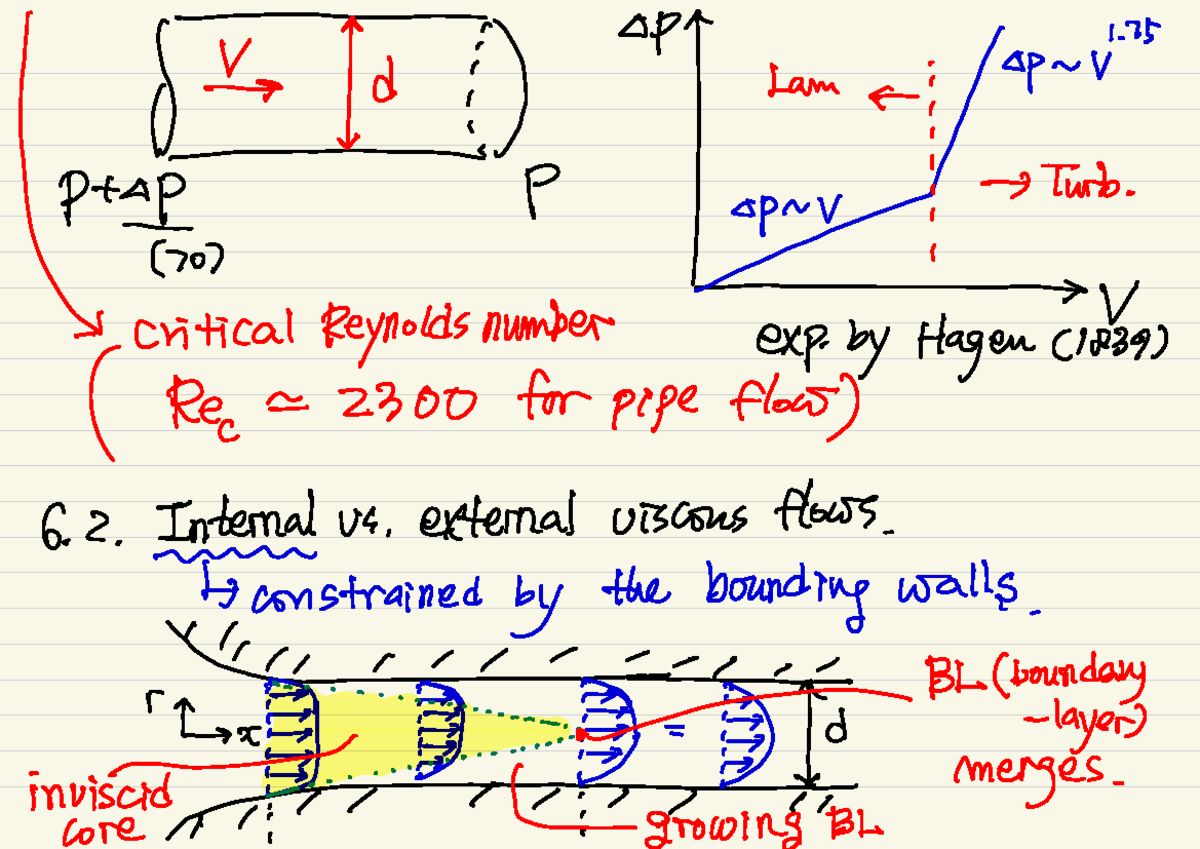 V
d
P+ΔP
(>0)
P
ΔP
Lam
ΔP~V^1.75
ΔP~V
Turb.
V
exp. by Hagen (1839)
critical Reynolds number
Re_c ≃ 2300 for pipe flow)
6.2. Internal vs. external viscous flows.
constrained by the bounding walls.
r
x
=
d
BL (boundary
-layer)
merges.
inviscid
core
growing BL